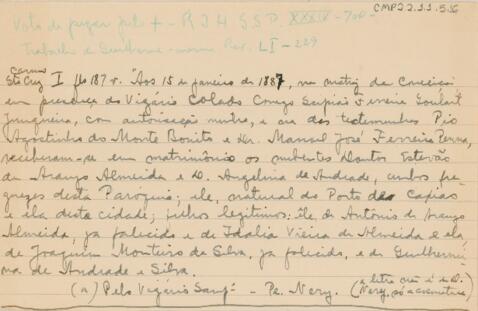 CMP 2.2.3.1.556
Voto de pezar pelo + - R I H S S P. XXXIV - 700 -
Trabalho de Guilherme - mesma Rev. LI - 229
Carmo
Sta Cruz I fls 187 v. "Aos 15 de janeiro de 1887, na matriz da Conceição
em presença do Vigário Colado Conego Scipião Ferreira Goulart
Junqueira, com autorisação minha, e das testemunhas Pio
Agostinho do Monte Bonito e Dr. Manoel José Ferreira Penna,
receberam-se em matrimônio os nubentes Dantos Estevão
de Araujo Almeida e D. Angelina de Andrade, ambos fre-
guezes desta Paróquia; ele, natural do Porto das Caxias
e ela desta cidade; filhos legitimos: ele de Antonio de Araujo
Almeida, ja falecido e de Idalia Vieira de Almeida e ela
de Joaquim Monteiro da Silva, ja falecido, e de Guilhermi-
na de Andrade e Silva.
(a) Pelo Vigário - Pe. Nery.
(a letra não é de D.
Nery, só a assinatura)